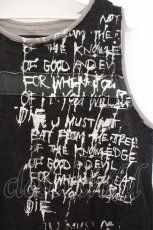 NOT
FROM THE
OF THE KNOWLE
OF GOOD AND EVIL
FOR WHEN YOU
OF IT YOU WILL
DIE U MUST NOT
EAT FROM THE TREE
OF THE KNOWLEDGE
OF GOOD & EVIL
FOR WHEN YOU EAT
OF
DIE